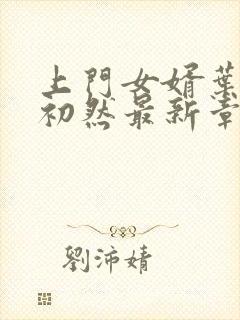 上門女婿葉
初然最新章
劉沛婧